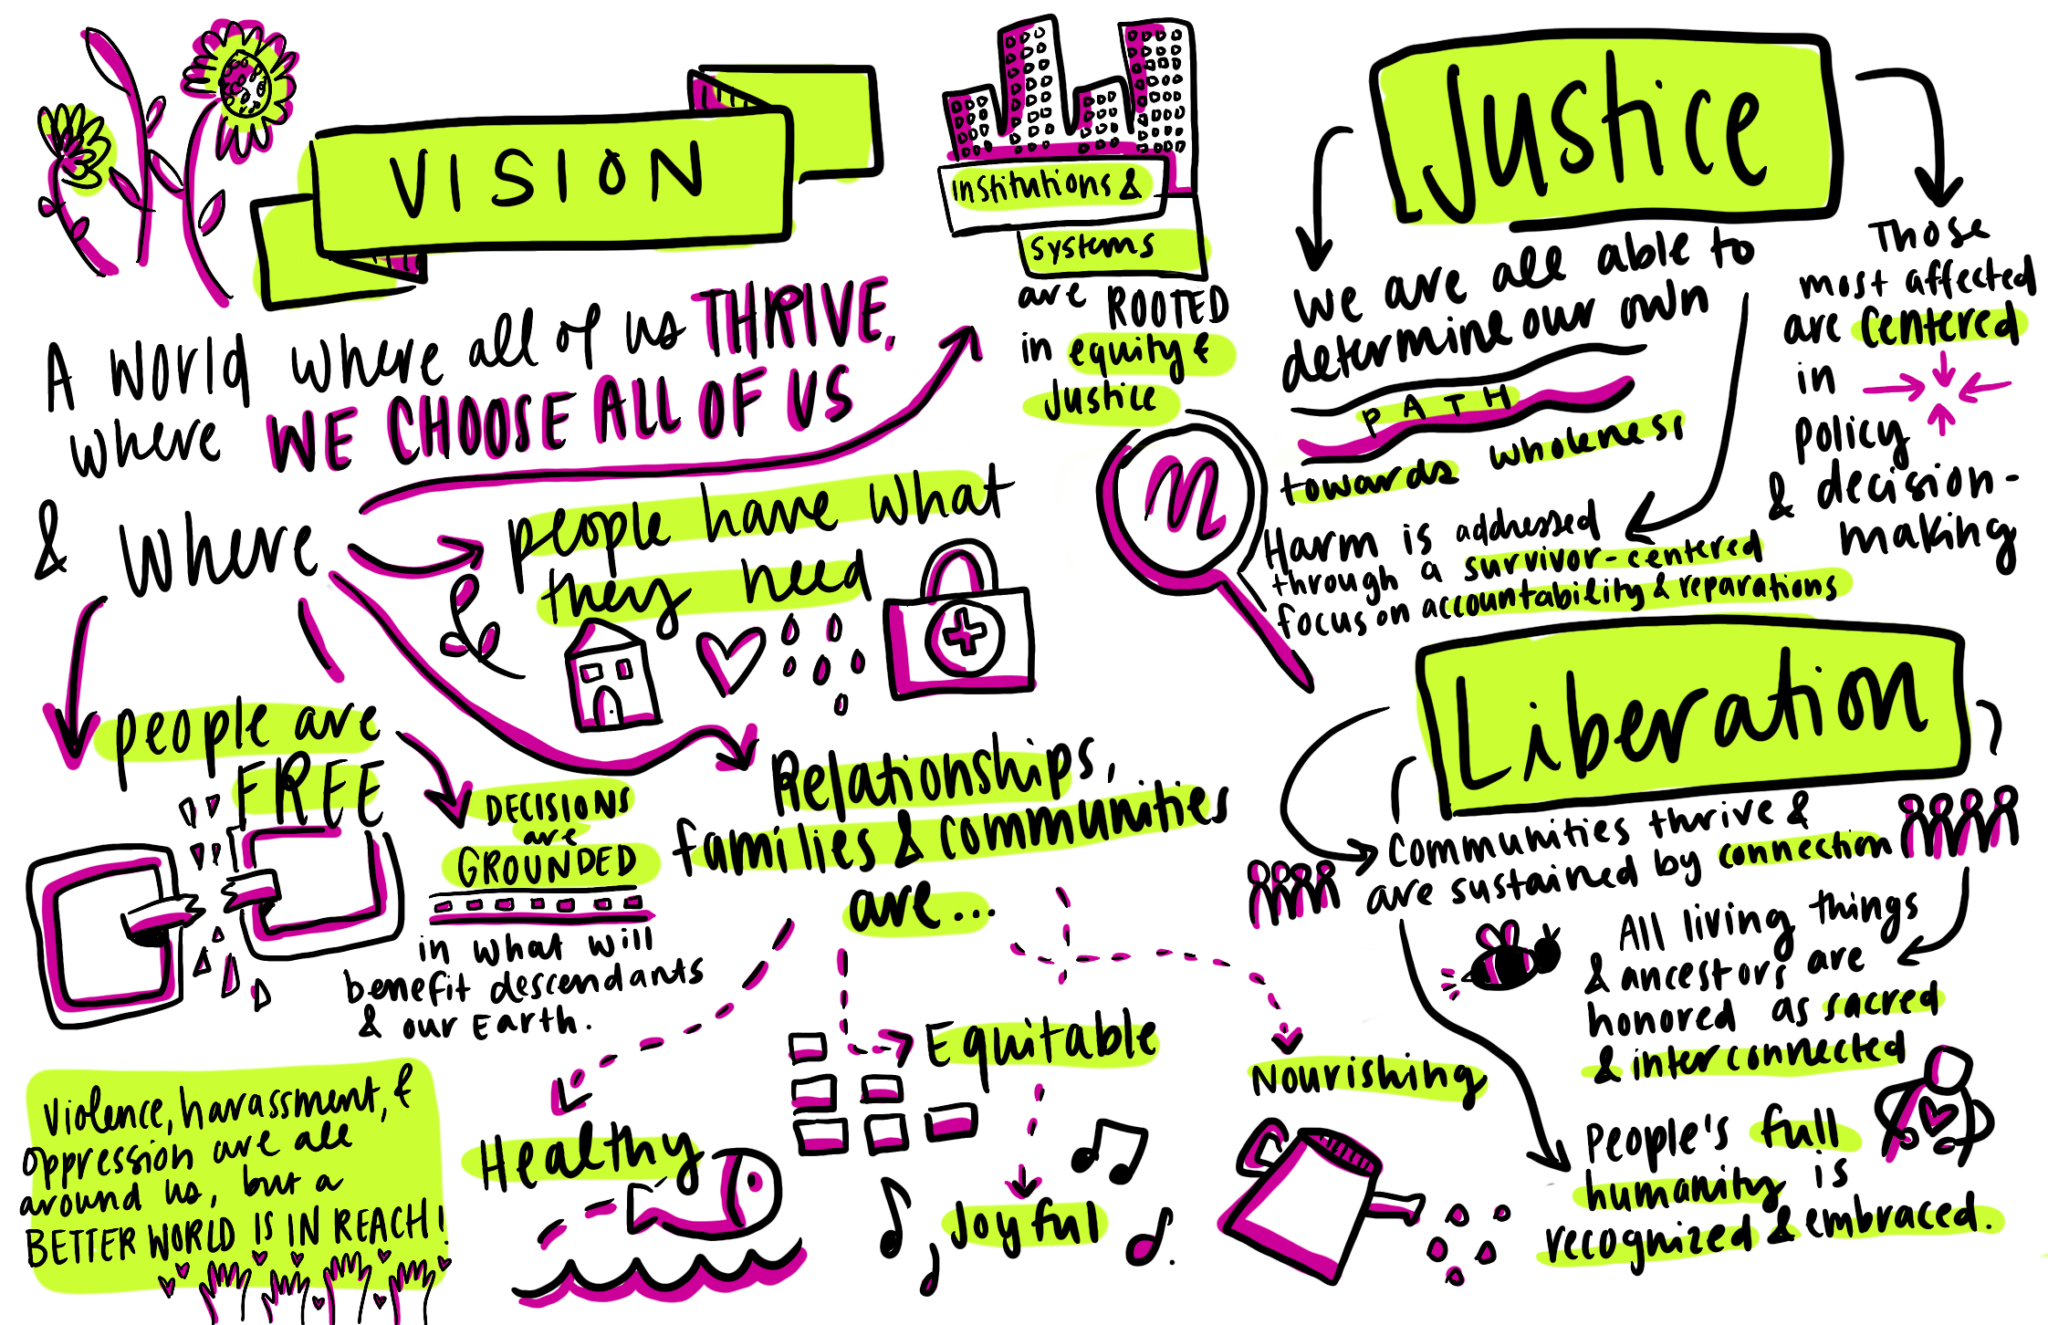 VISION
A WORld where all of us THRIVE,
where WE CHOOSE ALL OF US
& where
institutions &
systems
are ROOTED
in equity &
Justice
people have what
they need
people are
FREE
DECISIONS
are
GROUNDED
in what will
benefit descendants
& our Earth.
Relationships,
families & communities
are...
Healthy
Equitable
Joyful
Nourishing
Violence, harassment, &
oppression are all
around us, but a
BETTER WORLD IS IN REACH!
Justice
We are all able to
determine our own
PATH
towards wholeness
Harm is addressed
through a survivor-centered
focus on accountability & reparations
Those
most affected
are centered
in
policy
& decision-
making
Liberation
Communities thrive &
are sustained by connection
All living things
& ancestors are
honored as sacred
& interconnected
People's full
humanity is
recognized & embraced.